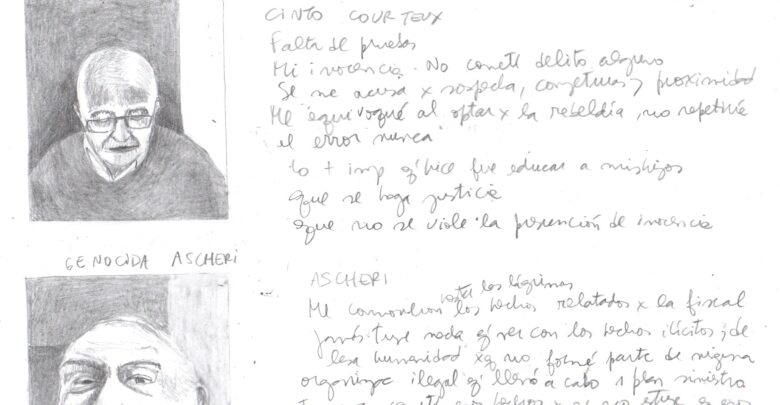 CINTO COURTEUX
Falta de pruebas
Mi inocencia. No cometí delito alguno
Se me acusa x sospecha, conjeturas y proximidad
Me equivoqué al optar x la rebeldía, no repetiría
el error nunca
lo + imp q' hice fue educar a mis hijos
que se haga justicia
que no se viole la presunción de inocencia
GENOCIDA ASCHERI
ASCHERI
hasta las lágrimas
Me conmovieron los hechos relatados x la fiscal
jamás tuve nada q' ver con los hechos ilícitos, de
lesa humanidad xq no formé parte de
ilegal q' llevó a cabo 1 plan siniestro